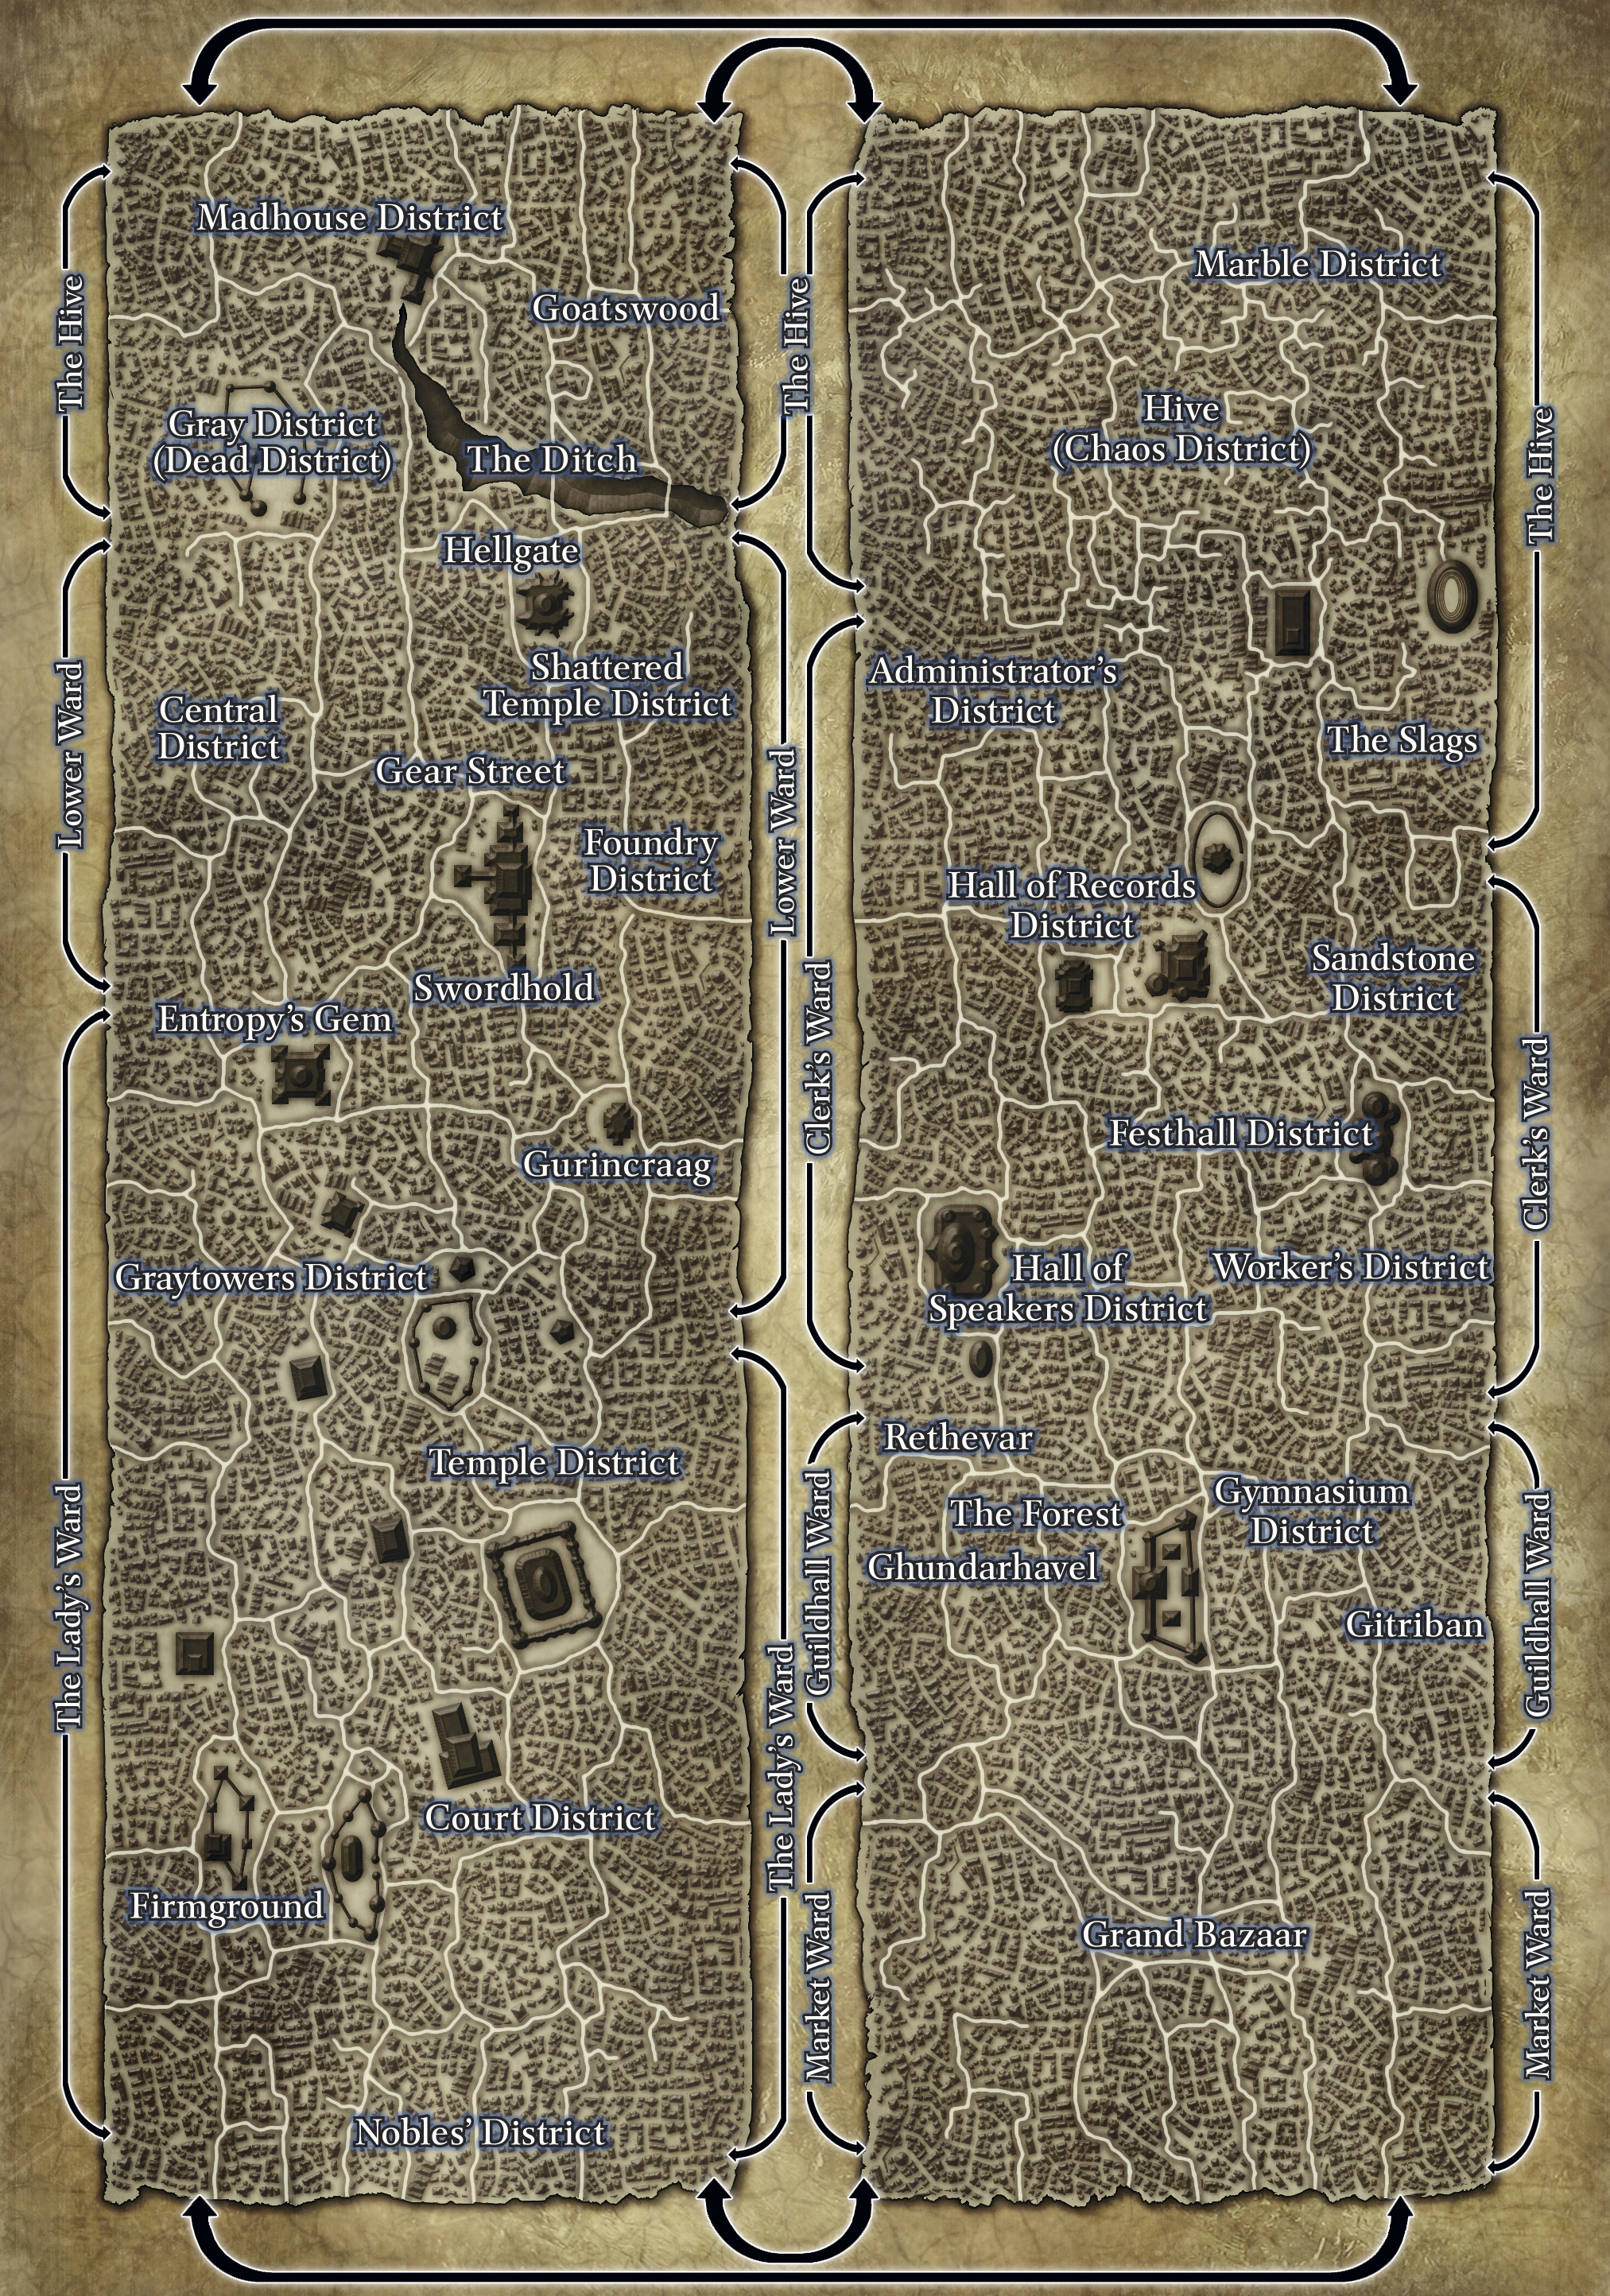 Madhouse District
Goatswood
The Hive
The Hive
Gray District
(Dead District)
The Ditch
Hellgate
Shattered
Temple District
Central
District
Gear Street
Lower Ward
Lower Ward
Foundry
District
Swordhold
Entropy's Gem
Gurincraag
Graytowers District
Temple District
The Lady's Ward
The Lady's Ward
Court District
Firmground
Nobles' District
Marble District
Hive
(Chaos District)
The Hive
Administrator's
District
The Slags
Hall of Records
District
Sandstone
District
Clerk's Ward
Clerk's Ward
Festhall District
Hall of
Speakers District
Worker's District
Rethevar
The Forest
Gymnasium
District
Ghundarhavel
Gitriban
Guildhall Ward
Guildhall Ward
Grand Bazaar
Market Ward
Market Ward